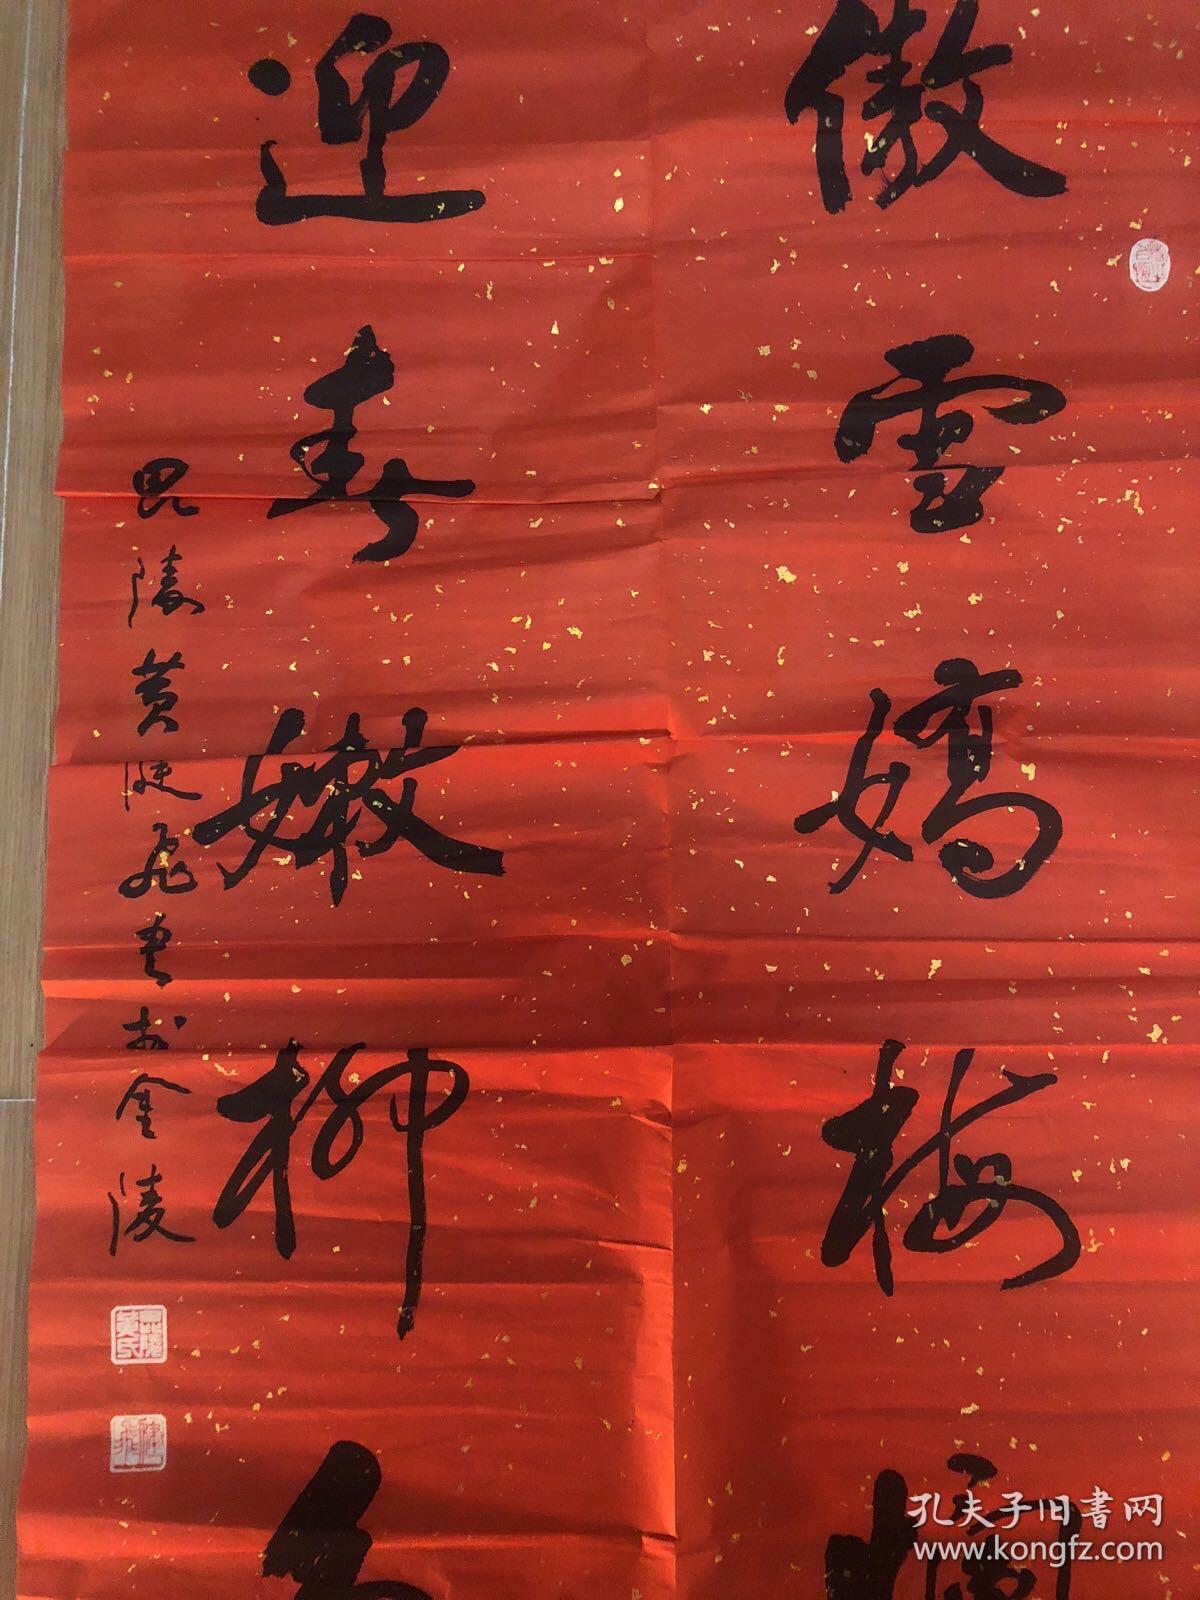 傲雪嬌梅
迎春嫩柳
毘陵黄陡飛書於金陵
毘陵黄氏
孔夫子旧書网
www.kongfz.com